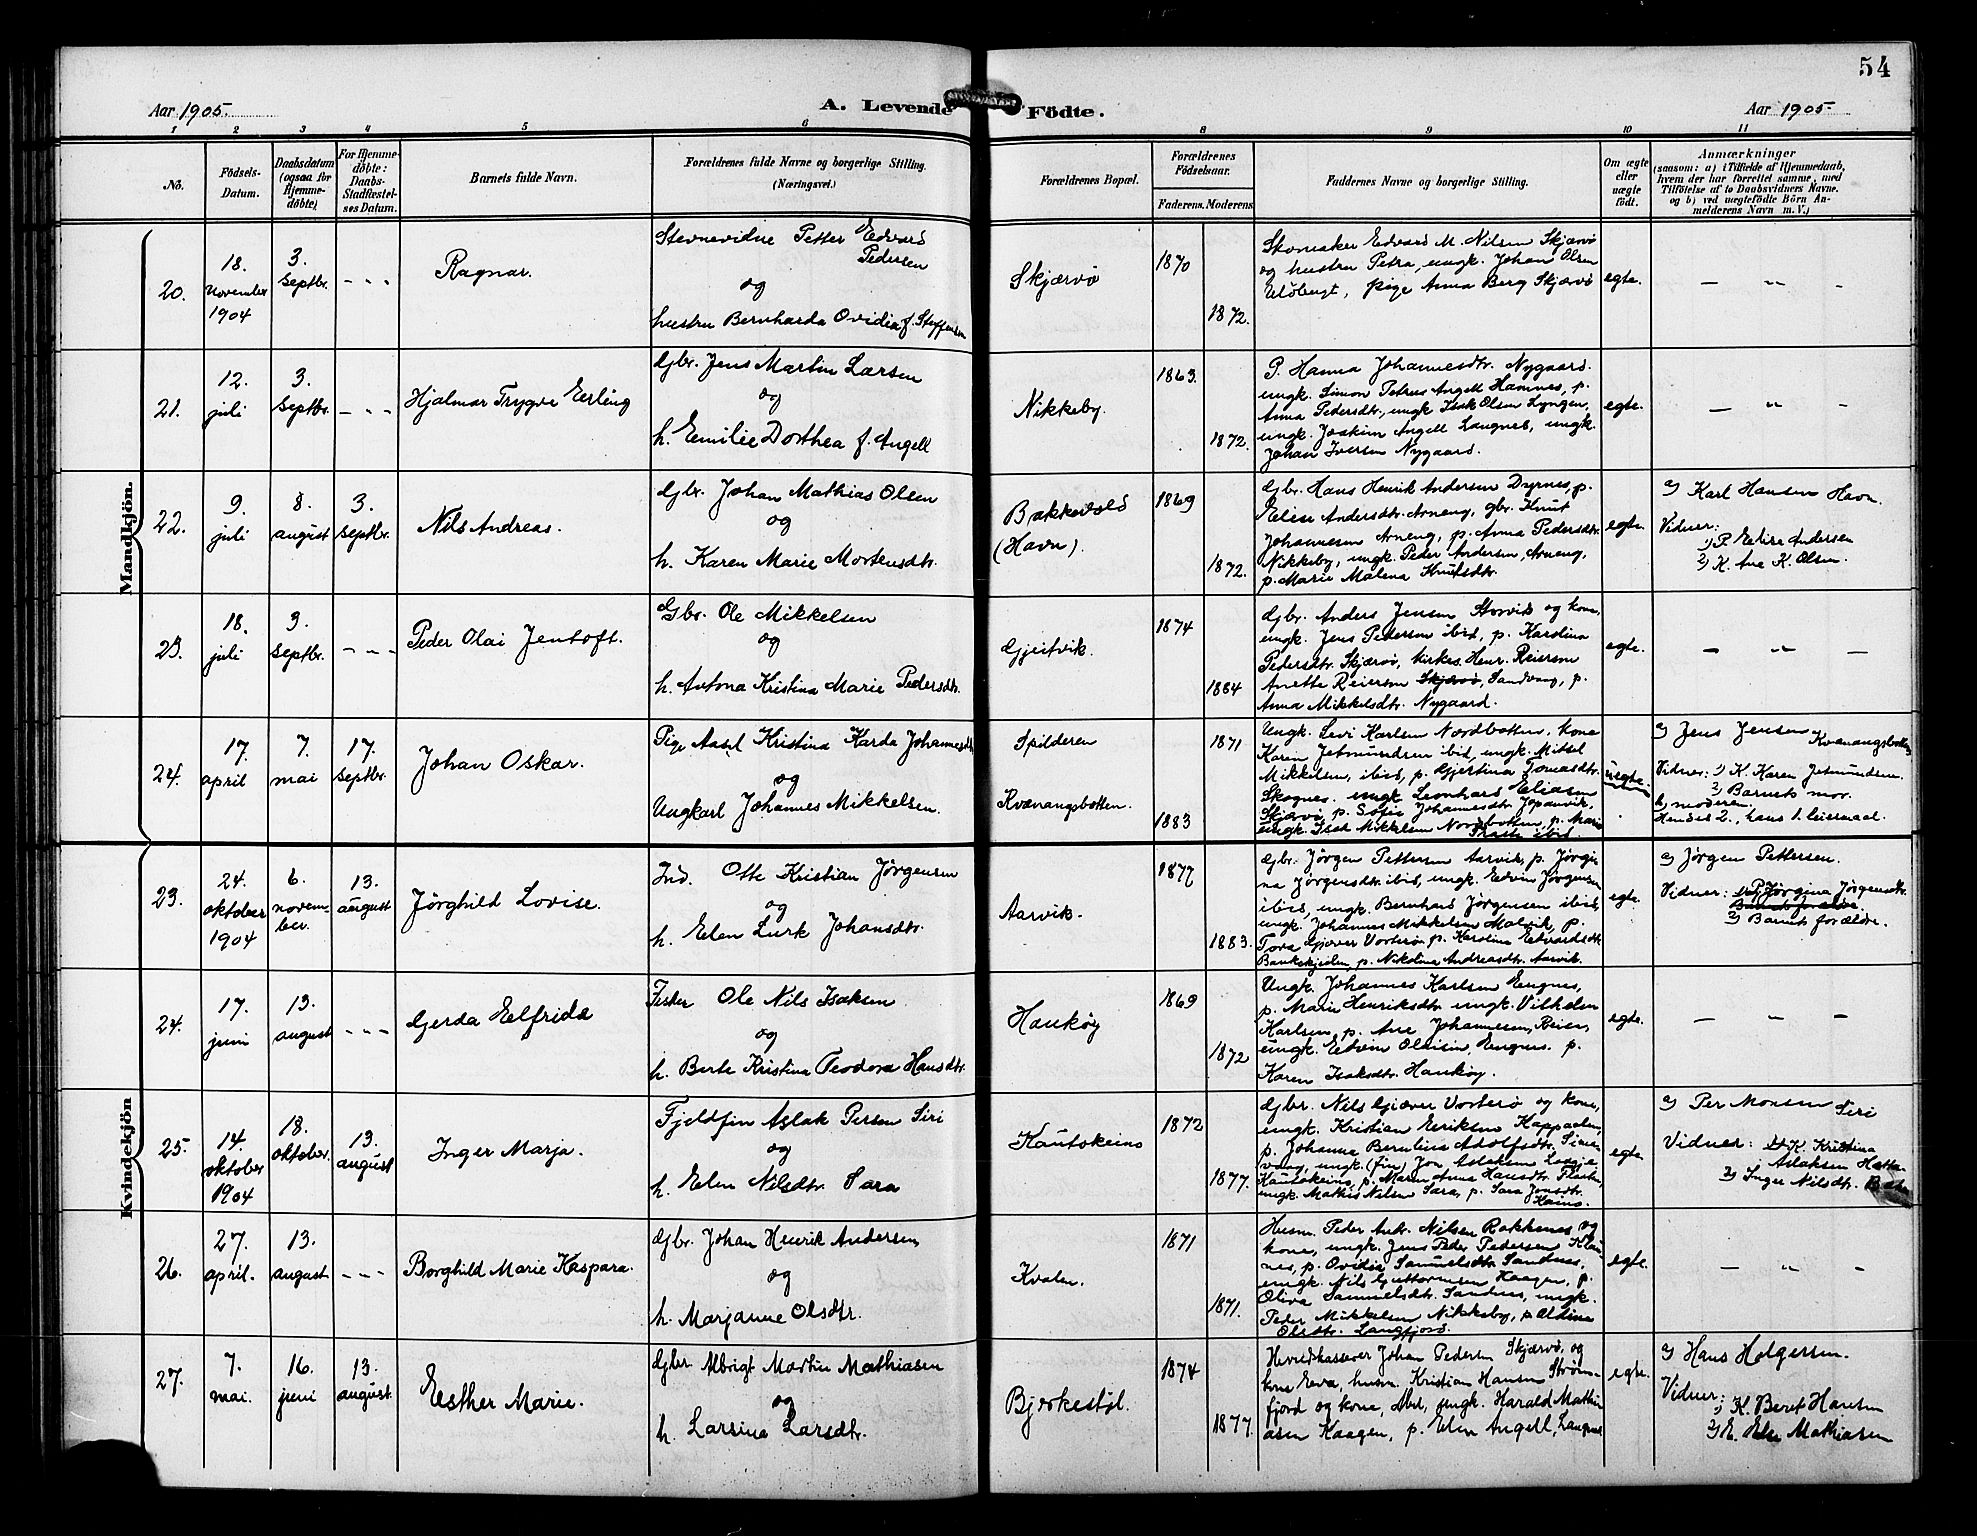 54
Aar 1905.
A. Levende Födte.
Aar 1905.
1 2 3 4 5 6 8 9 10 11
No.
Födsels-
Datum.
Daabsdatum
(ogsaa for
Hjemme-
döbte).
For Hjemme-
döbte:
Daabs-
Stadfæstel-
ses Datum.
Barnets fulde Navn.
Forældrenes fulde Navne og borgerlige Stilling.
(Næringsvei.)
Forældrenes Bopæl.
Forældrenes
Födselsaar.
Faderens. Moderens
Faddernes Navne og borgerlige Stilling.
Om ægte
eller
uægte
födt.
Anmærkninger
(saasom: a) i Tilfælde af Hjemmedaab,
hvem der har forrettet samme, med
Tilföielse af to Daabsvidners Navne.
og b) ved uægtefödte Börn An-
melderens Navn m. V.)
Mandkjön.
20.
18.
november
1904
3.
septbr.
- - -
Ragnar.
Stevnevidne Petter Edvard
Pedersen
og
hustru Bernharda Ovidia f. Steffensen
Skjærvö
1870
1872.
Skomaker Edvard M. Nilsen Skjærvö
og hustru Petra, ungk. Johan Olsen
Ulöbugt, pige Anna Berg Skjærvö
egte.
— " -
21.
12.
juli
3.
septbr.
- - -
Hjalmar Trygve Erling
Gbr. Jens Martin Larsen
og
h. Emilie Dorthea f. Angell
Nikkeby.
1863.
1872.
P. Hanna Johannesdtr. Nygaard.
ungk. Simon Petrus Angell Hamnes, p.
Anna Pedersdtr., ungk. Isak Olsen Lyngen,
ungk. Joakim Angell Langnes, ungk.
Johan Iversen Nygaard.
egte.
— " -
22.
9.
juli
8.
august
3.
septbr.
Nils Andreas.
Gbr. Johan Mathias Olsen
og
h. Karen Marie Mortensdtr.
Bakkevold
(Havn).
1869
1872.
Gbr. Hans Henrik Andersen Dyrnes, p.
Elise Andersdtr. Arneng, gbr. Knut
Johannesen Arneng, p. Anna Pedersdtr.
Nikkeby, ungk. Peder Andersen, Arneng,
p. Marie Malena Knutsdtr.
egte.
a) Karl Hansen Havn.
Vidner:
1) P. Elise Andersen
2) K. Ane K. Olsen.
23.
18.
juli
3.
septbr.
- - -
Peder Olai Jentoft.
Gbr. Ole Mikkelsen
og
h. Antona Kristina Marie Pedersdtr.
Gjeitvik.
1874
1884
Gbr. Anders Jensen Storvik og kone,
ungk. Jens Pedersen ibid, p. Karolina
Pedersdtr. Skjærvö, kirkes. Henr. Reiersen
Anette Reiersen Skjærvö, Sandvaag, p.
Anna Mikkelsdtr. Nygaard.
egte.
— " —
24.
17.
april
7.
mai
17.
septbr.
Johan Oskar.
Pige Aasel Kristina Karda Johannesdtr
og
Ungkarl Johannes Mikkelsen.
Spilderen
Kvænangsbotten.
1871
1883
Ungk. Levi Karlsen Nordbotten, kone
Karen Jetmundsen ibid, ungk. Mikkel
Mikkelsen, ibid, p. Gjertina Tomasdtr.
Skognes. ungk Leonhard Eliasen
Skjærvö, p. Sofie Johannesdtr.
ungk. Isak Mikkelsen Nordbotten, p. Marie
ibid.
uegte
a) Jens Jensen
Kvænangsbotten
Vidner: 1) K. Karen Jetmundsen.
2) Barnets mor.
b) moderen.
Hendes 2., hans 1. leiermaal.
Kvindekjön
23.
24.
oktober
1904
6.
novem-
ber.
13.
august
Jörghild Lovise.
Ind. Otte Kristian Jörgensen
og
h. Elen Lurk Johansdtr.
Aarvik.
1877
1883.
Gbr. Jörgen Pettersen Aarvik, p. Jörgi-
na Jörgensdtr. ibid, ungk. Edvin Jörgensen
ibid, ungk. Bernhard Jörgensen ibid,
ungk. Johannes Mikkelsen Malvik, P
Tora Gjæver Vorterö, p. Karolina Edvardsdtr
p. Nikolina Andreasdtr. Aarvik.
egte.
a) Jörgen Pettersen.
Vidner: 1) P. Jörgina Jörgensdtr.
2) Barnets forældre.
24.
17.
juni
13.
august
- - -
Gerda Elfrida
Fisker Ole Nils Isaksen
og
h. Berte Kristina Teodora Hansdtr.
Haukøy
1869
1872
Ungk. Johannes Karlsen Engnes,
p. Marie Henriksdtr. ungk. Vilhelm
Karlsen, p. Ane Johannesen, Reier,
ungk. Edvin Olaisen, Engnes. p.
Karen Isaksdtr. Haukøy.
egte.
— — —
25.
14.
oktober
1904
18.
oktober.
13.
august
Inger Marja.
Fjeldfin Aslak Persen Siri
og
h. Elen Nilsdtr. Sara
Kautokeino
1872
1877.
Gbr. Nils Gjæver Vorterö og kone,
ungk. Kristian Eriksen Kappaelen,
p. Johanna Bernlius Adolfsdtr.
ungk. (fin) Jon Aslaksen
Kautokeino, p. Maren Anna Hansdtr. Flaaten,
ungk. Mathis Nilsen Sara, p. Sara Jonsdtr.
Kaino.
egte.
a) Per Monsen Siri
Vidner: 1) K. Kristina
Aslaksen Hætta
2) Inger Nilsdtr.
26.
27.
april.
13.
august
- - -
Borghild Marie Kaspara.
Gbr. Johan Henrik Andersen
og
h. Marjanne Olsdtr.
Kvalen.
1871
1871.
Husm. Peder Antr. Nilsen Rakkenes og
kone, ungk. Jens Peder Pedersen
nes, p. Ovidia Samuelsdtr. Sandnes,
ungk. Nils Guttormsen Kaagen, p.
Oliva Samuelsdtr. Sandnes, ungk.
Peder Mikkelsen Nikkeby, p. Aldina
Olsdtr. Langfjord.
egte.
— " -
27.
7.
mai.
16.
juni
13.
august.
Esther Marie.
Gbr. Albrigt Martin Mathiasen
og
h. Larsina Larsdtr.
Bjerkestjl.
1874
1877.
Herredskasserer Johan Pedersen Skjærvö, og
kone Eva, husm. Kristian Hansen Ström-
fjord og kone, Abel, ungk. Harald Mathi-
asen Kaagen, p. Elen Angell, Langnes
egte.
a) Hans Holgersen.
Vidner:
1) K. Berit Hansen
2) E. Else Mathiasen